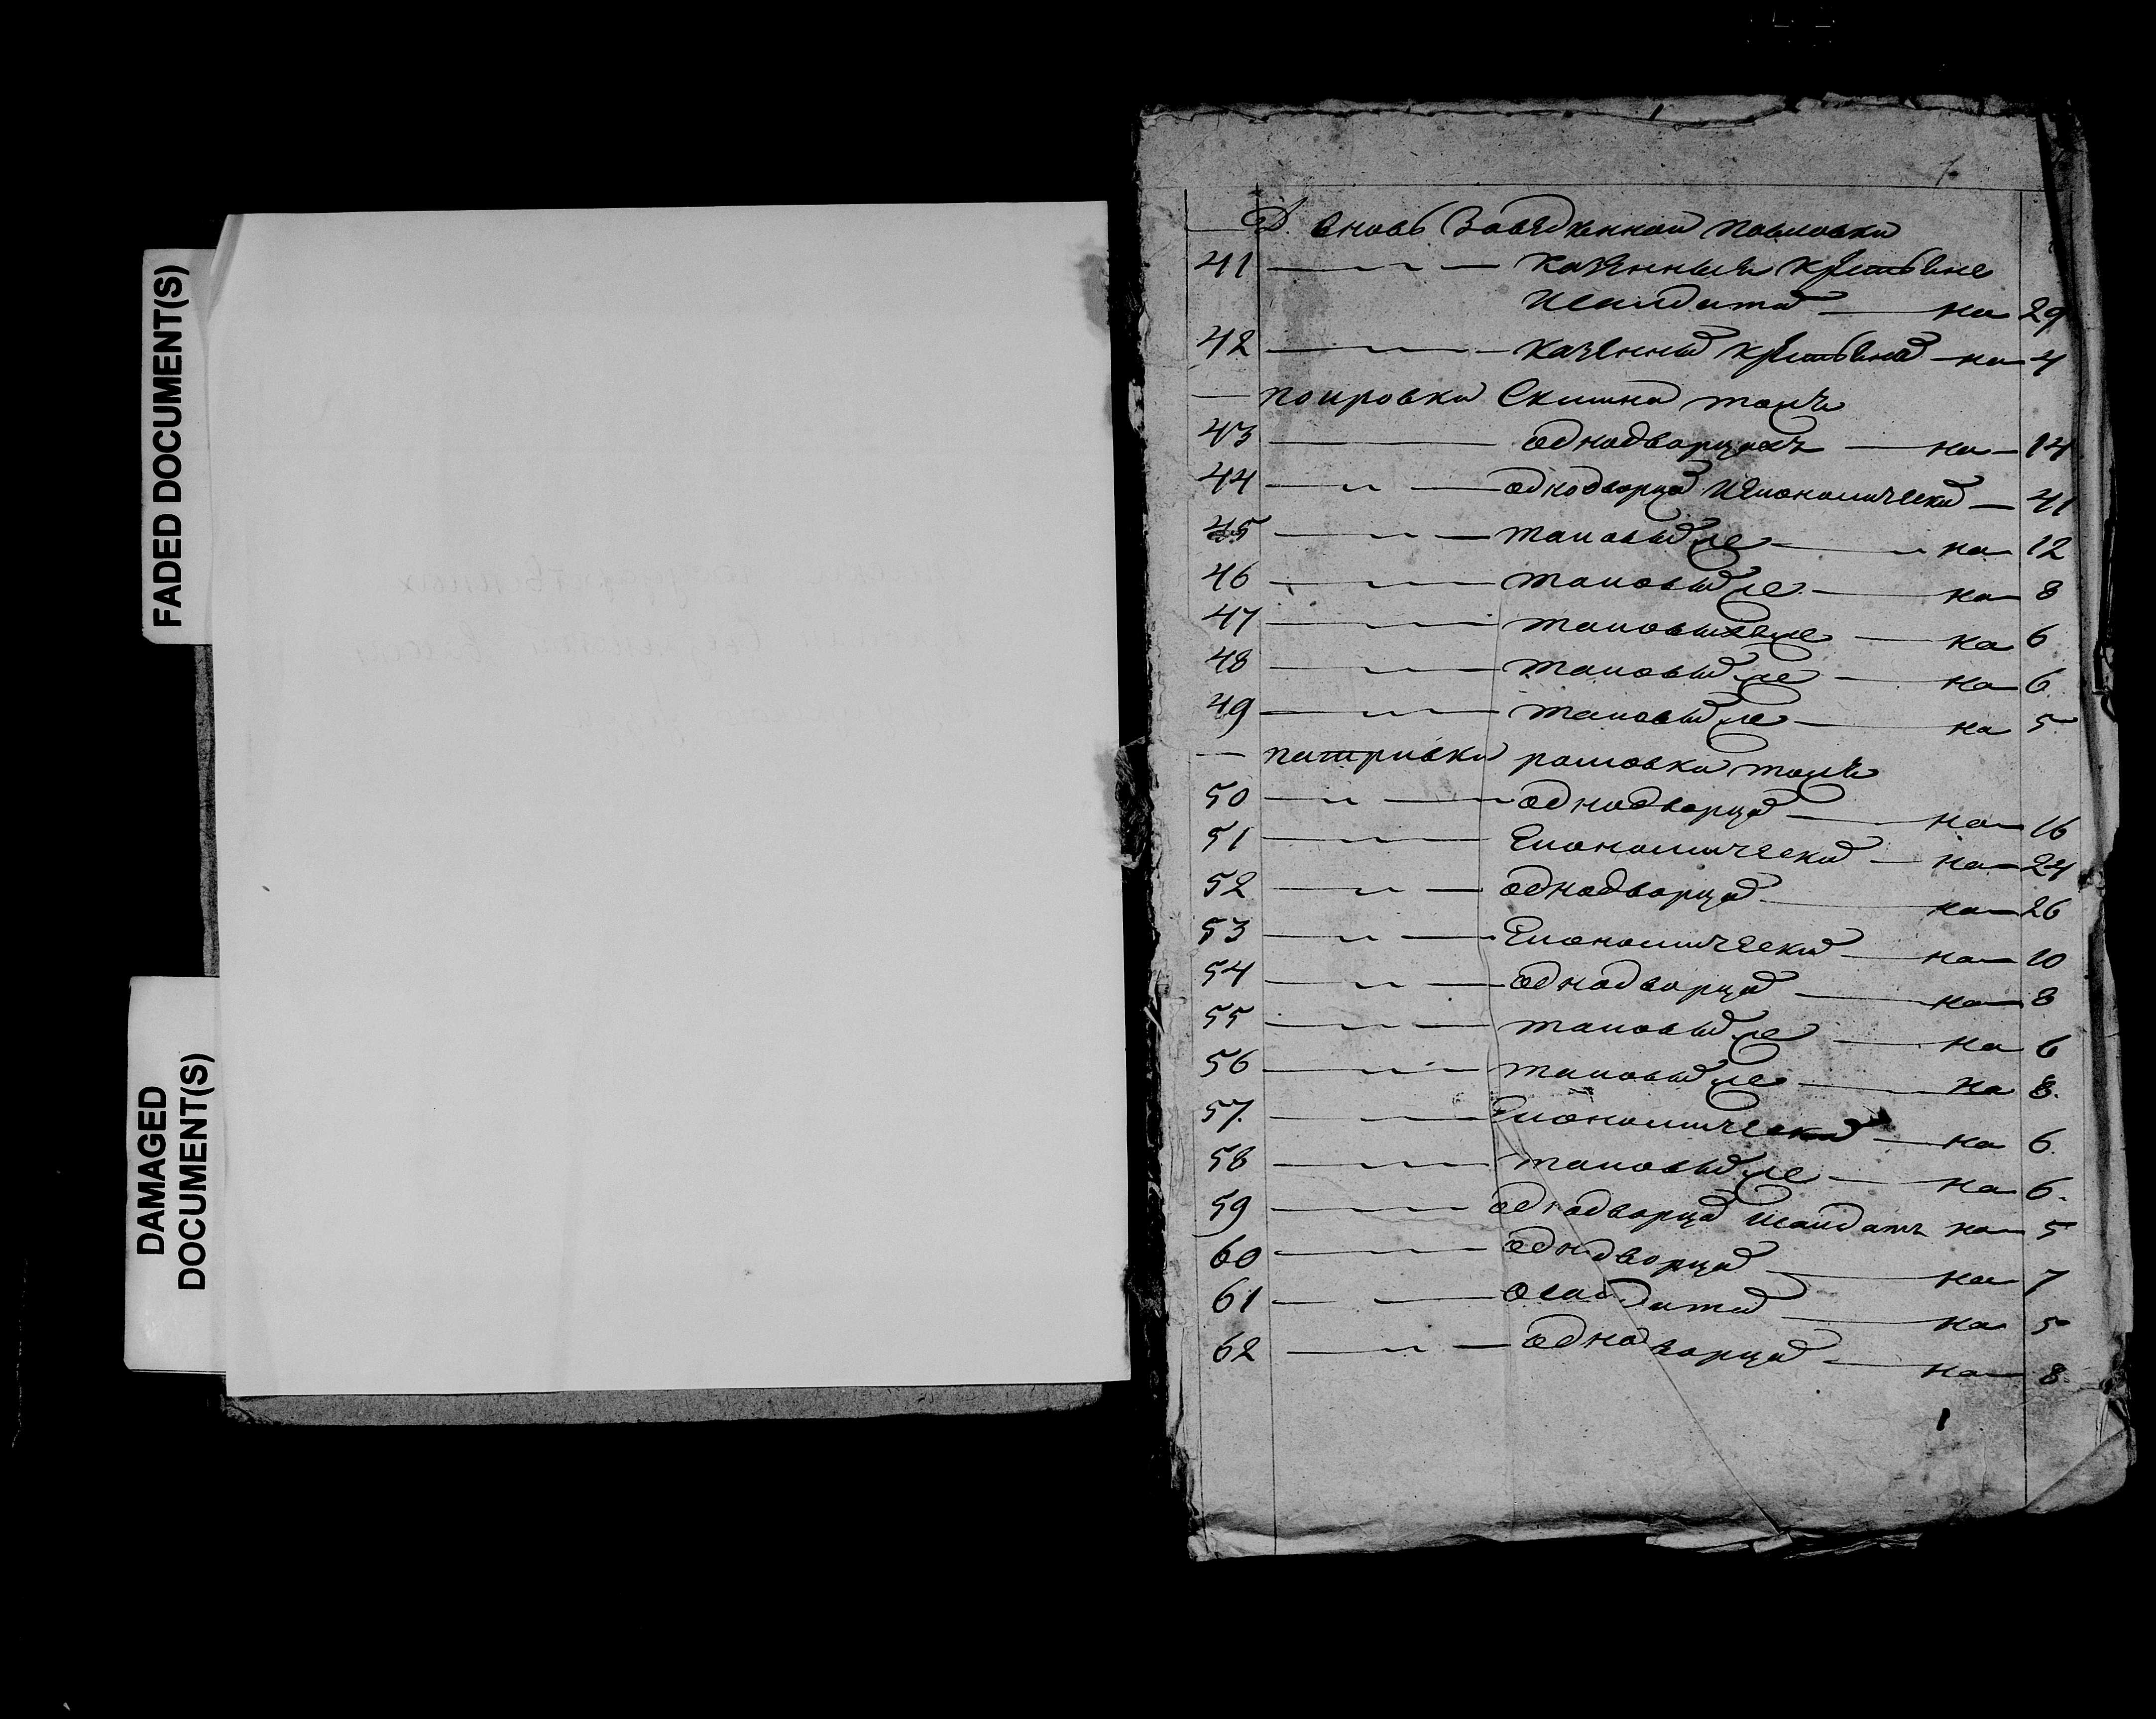 FADED DOCUMENT(S)
DAMAGED
DOCUMENT(S)
1
Д. вновь Заведенной Павловки
41 — „ — казенныхъ крестьянъ
и салдатъ — на 29
42 — „ — казенныхъ крестьянъ — на 4
— покровки тожъ
43 — однодворцахъ — на — 14
44 — „ — однодворцовъ и Економическихъ — 41
45 — „ — таковыхже — на 12
46 — „ — таковыхже — на 8
47 — „ — таковыхже — на 6
48 — „ — таковыхже — на 6
49 — „ — таковыхже — на 5
— тожъ
50 — „ — однодворцовъ — на 16
51 — „ — Економическихъ — на — 24
52 — „ — однодворцовъ — на — 26
53 — „ — Економическихъ — на — 10
54 — „ — однодворцовъ — на — 8
55 — „ — таковыхже — на 6
56 — „ — таковыхже — на 8.
57. — „ — Економическихъ — на 6.
58 — „ — таковыхже — на 6.
59 — „ — однодворцовъ исалдатъ на — 5
60 — „ — однодворцовъ — на 7
61 — — салдатъ — на 5
62 — „ — однодворцовъ — на — 8.
1